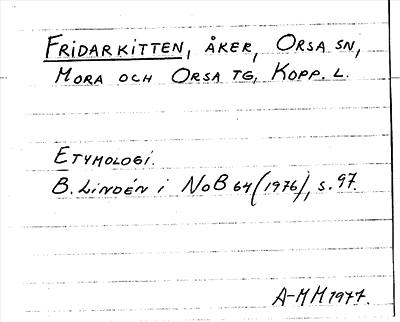 FRIDARKITTEN, ÅKER, ORSA SN,
MORA OCH ORSA TG, KOPP. L.
ETYMOLOGI.
B. LINDÉN i NoB 64 (1976), s. 97.
A-MM 1977.